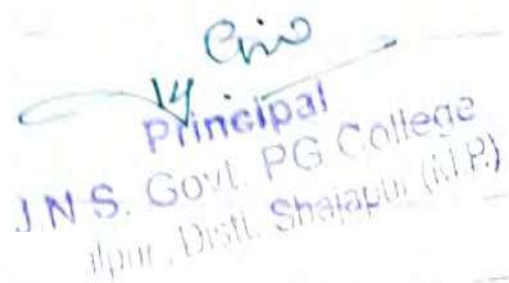 Principal
J.N.S. Govt. PG College
Distt. Shajapur (M.P.)